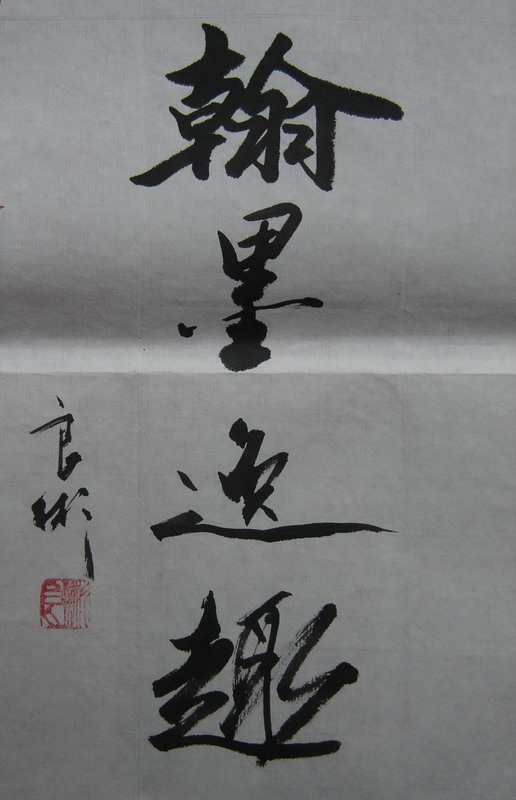 翰墨逸趣
良彬